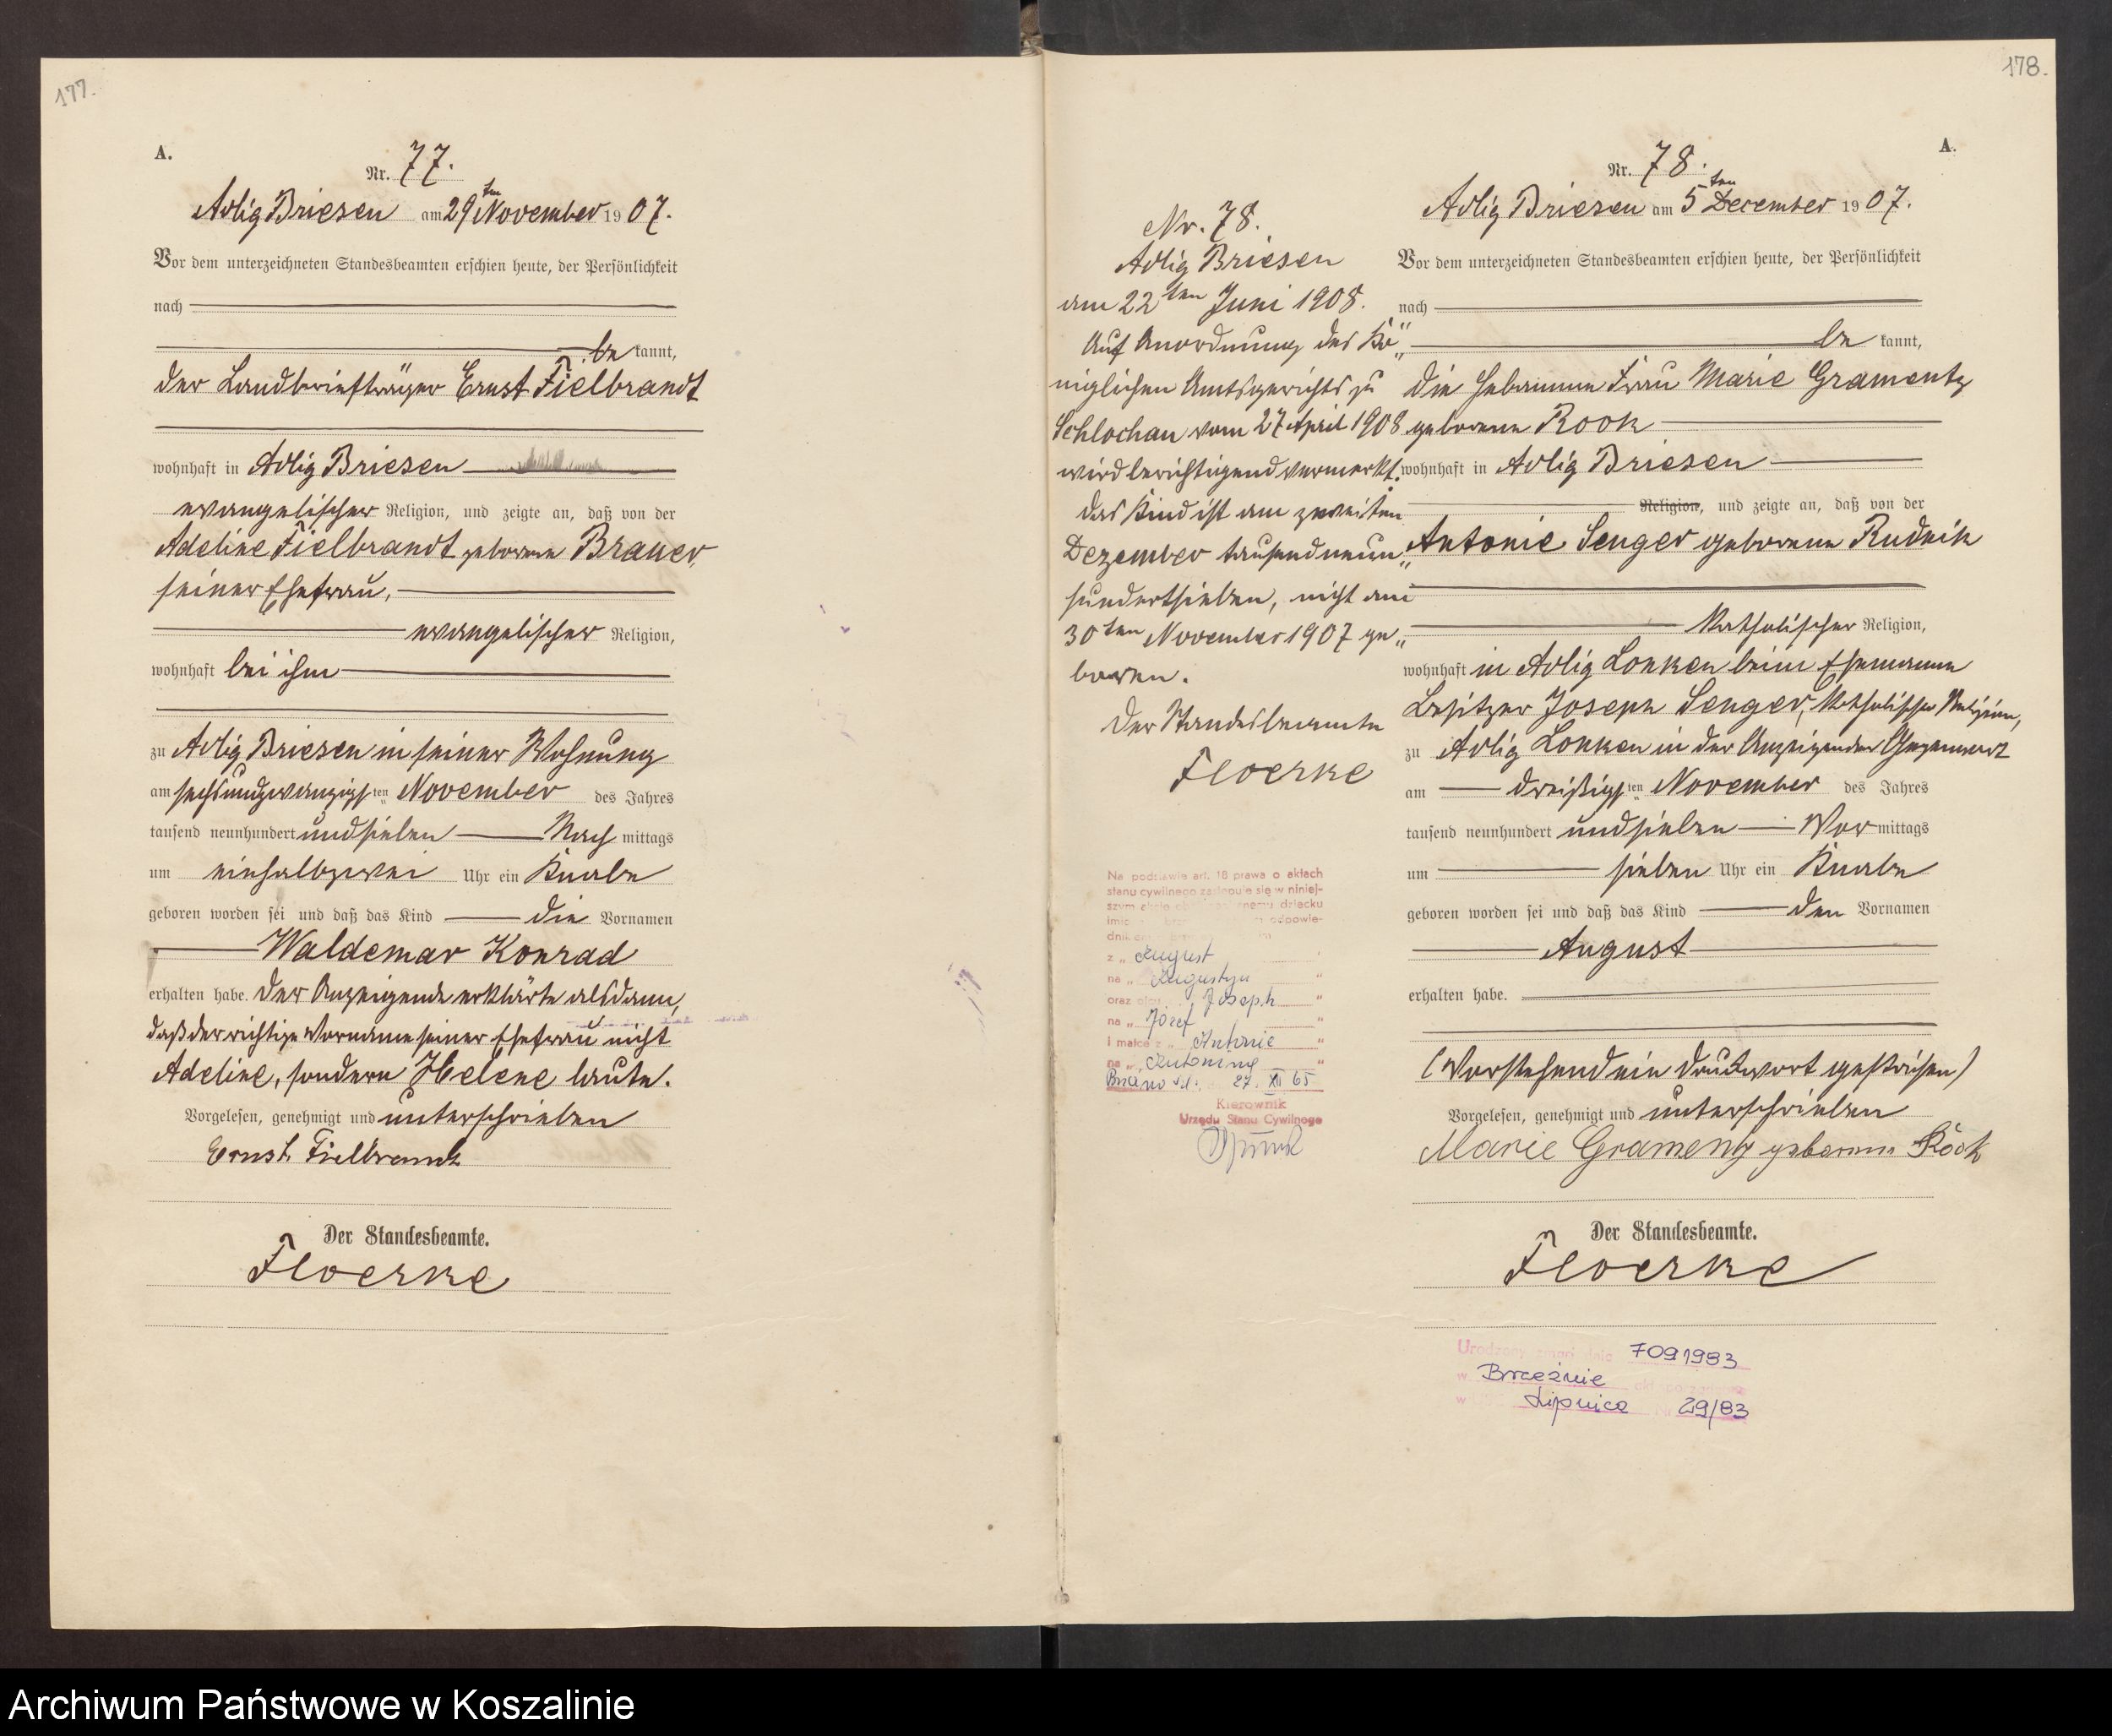 177.
A.
Nr. 77.
Adlig Briesen am 29ten November 1907.
Vor dem unterzeichneten Standesbeamten erschien heute, der Persönlichkeit
nach
be kannt,
der Landbriefträger Ernst Fielbrandt
wohnhaft in Adlig Briesen
evangelischer Religion, und zeigte an, daß von der
Adeline Fielbrandt geborene Brauer,
seiner Ehefrau,
evangelischer Religion,
wohnhaft bei ihm
zu Adlig Briesen in seiner Wohnung
am sechsundzwanzigsten November des Jahres
tausend neunhundert und sieben Nach mittags
um einhalbzwei Uhr ein Knabe
geboren worden sei und daß das Kind die Vornamen
Waldemar Konrad
erhalten habe. Der Anzeigende erklärte alsdann,
daß der richtige Vorname seiner Ehefrau nicht
Adeline, sondern Helene laute.
Vorgelesen, genehmigt und unterschrieben
Ernst Fielbrandt
Der Standesbeamte.
Floerke
178.
A.
Nr. 78.
Adlig Briesen
am 22ten Juni 1908.
Auf Anordnung des Kö„
niglichen Amtsgerichts zu
Schlochau vom 27 April 1908
wird berichtigend vermerkt:
Das Kind ist am zweiten
Dezember tausendneun„
hundertsieben, nicht am
30ten November 1907 ge„
boren.
Der Standesbeamte
Floerke
Na podstawie art. 18 prawa o aktach
stanu cywilnego zastępuje się w niniej-
szym akcie dziecku
odpowie-
z „ August "
na „ Augustyn "
oraz Joseph "
na „ Józef "
i matce z „ Antonie "
na „ Antonina "
27. XII 65
Kierownik
Urzędu Stanu Cywilnego
Nr. 78.
Adlig Briesen am 5ten December 1907.
Vor dem unterzeichneten Standesbeamten erschien heute, der Persönlichkeit
nach
be kannt,
die Hebamme Frau Marie Gramentz
geborene Rook
wohnhaft in Adlig Briesen
Religion, und zeigte an, daß von der
Antonie Senger geborene Rudnik
katholischer Religion,
wohnhaft in Adlig Lonken beim Ehemanne
Besitzer Joseph Senger, katholischer Religion,
zu Adlig Lonken in der Anzeigenden Gegenwart
am dreißigsten November des Jahres
tausend neunhundert und sieben Vor mittags
um sieben Uhr ein Knabe
geboren worden sei und daß das Kind den Vornamen
August
erhalten habe.
(Vorstehend ein Druckwort gestrichen)
Vorgelesen, genehmigt und unterschrieben
Marie Gramentz geborene Rook
Der Standesbeamte.
Floerke
7091983
w Brzeźnie
w Lipnica 29/83
Archiwum Państwowe w Koszalinie